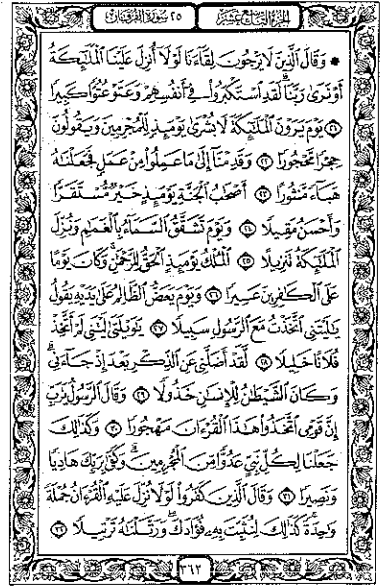 الجزء التاسع عشر ٢٥ سورة الفرقان
* وَقَالَ الَّذِينَ لَا يَرْجُونَ لِقَاءَنَا لَوْلَا أُنزِلَ عَلَيْنَا الْمَلَٰئِكَةُ
أَوْ نَرَىٰ رَبَّنَا لَقَدِ اسْتَكْبَرُوا فِي أَنفُسِهِمْ وَعَتَوْ عُتُوًّا كَبِيرًا
٢١ يَوْمَ يَرَوْنَ الْمَلَٰئِكَةَ لَا بُشْرَىٰ يَوْمَئِذٍ لِّلْمُجْرِمِينَ وَيَقُولُونَ
حِجْرًا مَّحْجُورًا ٢٢ وَقَدِمْنَا إِلَىٰ مَا عَمِلُوا مِنْ عَمَلٍ فَجَعَلْنَٰهُ
هَبَاءً مَّنثُورًا ٢٣ أَصْحَٰبُ الْجَنَّةِ يَوْمَئِذٍ خَيْرٌ مُّسْتَقَرًّا
وَأَحْسَنُ مَقِيلًا ٢٤ وَيَوْمَ تَشَقَّقُ السَّمَاءُ بِالْغَمَٰمِ وَنُزِّلَ
الْمَلَٰئِكَةُ تَنزِيلًا ٢٥ الْمُلْكُ يَوْمَئِذٍ الْحَقُّ لِلرَّحْمَٰنِ وَكَانَ يَوْمًا
عَلَى الْكَٰفِرِينَ عَسِيرًا ٢٦ وَيَوْمَ يَعَضُّ الظَّالِمُ عَلَىٰ يَدَيْهِ يَقُولُ
يَٰلَيْتَنِي اتَّخَذْتُ مَعَ الرَّسُولِ سَبِيلًا ٢٧ يَٰوَيْلَتَىٰ لَيْتَنِي لَمْ أَتَّخِذْ
فُلَانًا خَلِيلًا ٢٨ لَّقَدْ أَضَلَّنِي عَنِ الذِّكْرِ بَعْدَ إِذْ جَاءَنِي
وَكَانَ الشَّيْطَٰنُ لِلْإِنسَٰنِ خَذُولًا ٢٩ وَقَالَ الرَّسُولُ يَٰرَبِّ
إِنَّ قَوْمِي اتَّخَذُوا هَٰذَا الْقُرْءَانَ مَهْجُورًا ٣٠ وَكَذَٰلِكَ
جَعَلْنَا لِكُلِّ نَبِيٍّ عَدُوًّا مِّنَ الْمُجْرِمِينَ وَكَفَىٰ بِرَبِّكَ هَادِيًا
وَنَصِيرًا ٣١ وَقَالَ الَّذِينَ كَفَرُوا لَوْلَا نُزِّلَ عَلَيْهِ الْقُرْءَانُ جُمْلَةً
وَٰحِدَةً كَذَٰلِكَ لِنُثَبِّتَ بِهِ فُؤَادَكَ وَرَتَّلْنَٰهُ تَرْتِيلًا ٣٢
٣٦٢